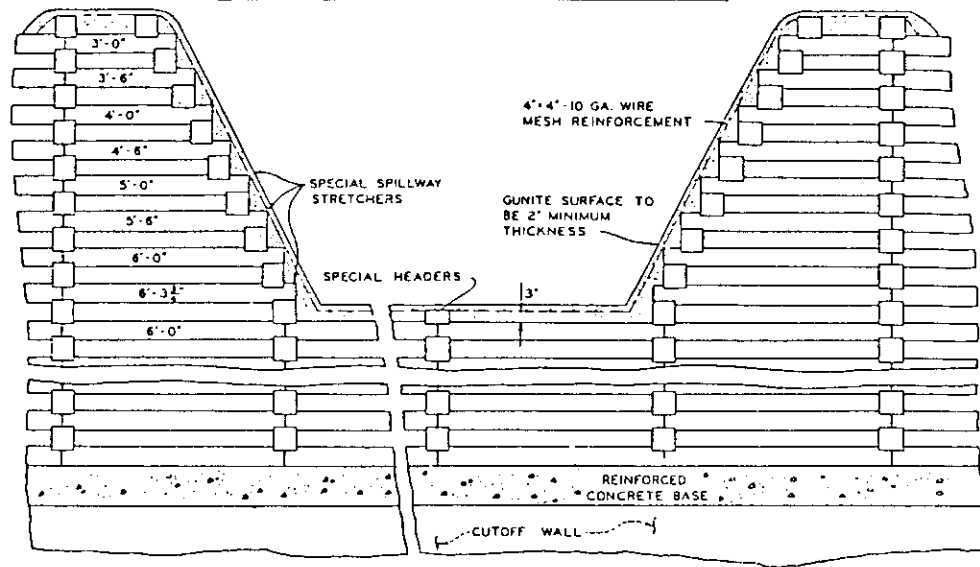 3'-0"
3'-6"
4'-0"
4'-6"
5'-0"
5'-6"
6'-0"
6'-3½"
6'-0"
SPECIAL SPILLWAY
STRETCHERS
SPECIAL HEADERS
4"×4"-10 GA. WIRE
MESH REINFORCEMENT
GUNITE SURFACE TO
BE 2" MINIMUM
THICKNESS
3"
REINFORCED
CONCRETE BASE
CUTOFF WALL